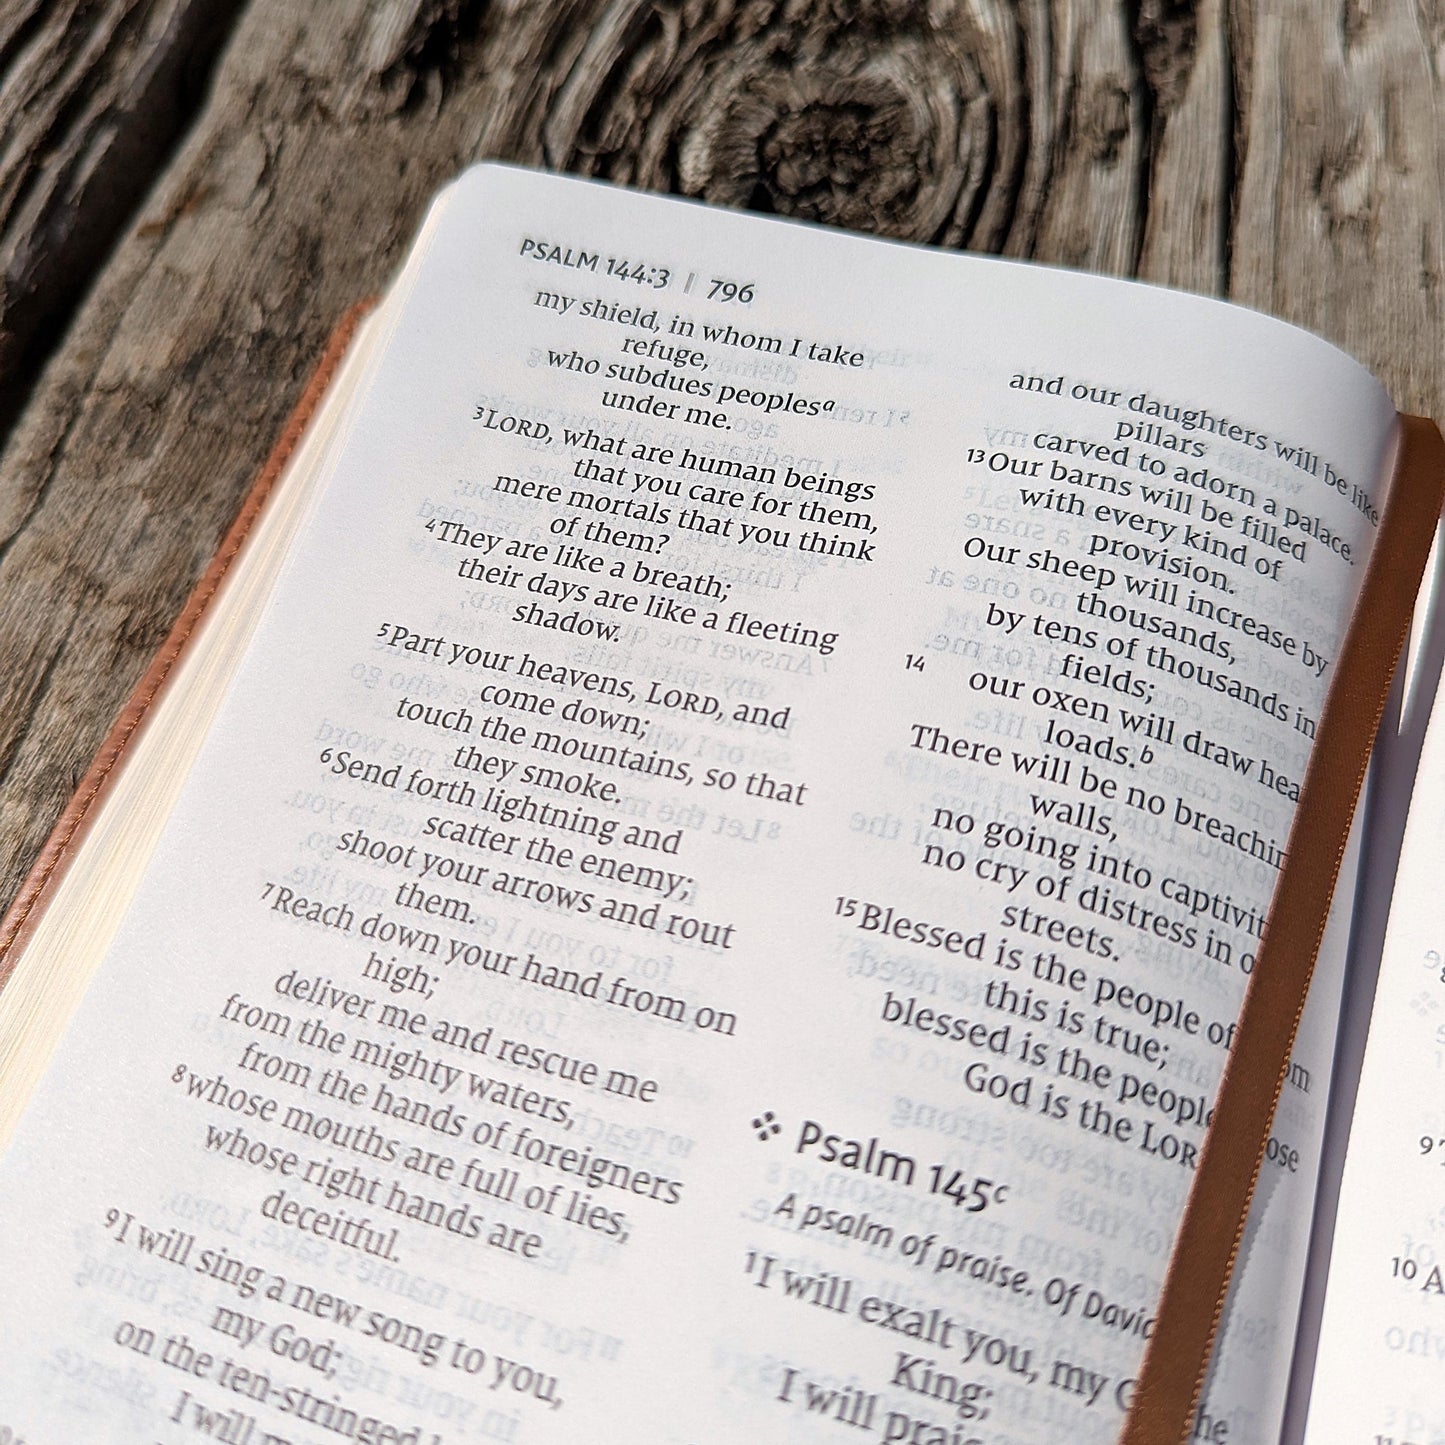 PSALM 144:3 | 796
my shield, in whom I take
refuge,
who subdues peoplesᵃ
under me.
³LORD, what are human beings
that you care for them,
mere mortals that you think
of them?
⁴They are like a breath;
their days are like a fleeting
shadow.
⁵Part your heavens, LORD, and
come down;
touch the mountains, so that
they smoke.
⁶Send forth lightning and
scatter the enemy;
shoot your arrows and rout
them.
⁷Reach down your hand from on
high;
deliver me and rescue me
from the mighty waters,
from the hands of foreigners
⁸whose mouths are full of lies,
whose right hands are
deceitful.
⁹I will sing a new song to you,
my God;
on the ten-stringed
I will
and our daughters will be like
pillars
carved to adorn a palace.
¹³Our barns will be filled
with every kind of
provision.
Our sheep will increase by
thousands,
by tens of thousands in
fields;
¹⁴ our oxen will draw hea
loads.ᵇ
There will be no breachin
walls,
no going into captivit
no cry of distress in o
streets.
¹⁵Blessed is the people of
this is true;
blessed is the people
God is the LOR
Psalm 145ᶜ
A psalm of praise. Of David
¹I will exalt you, my G
King;
I will prais
om
ose
he
9
10 A